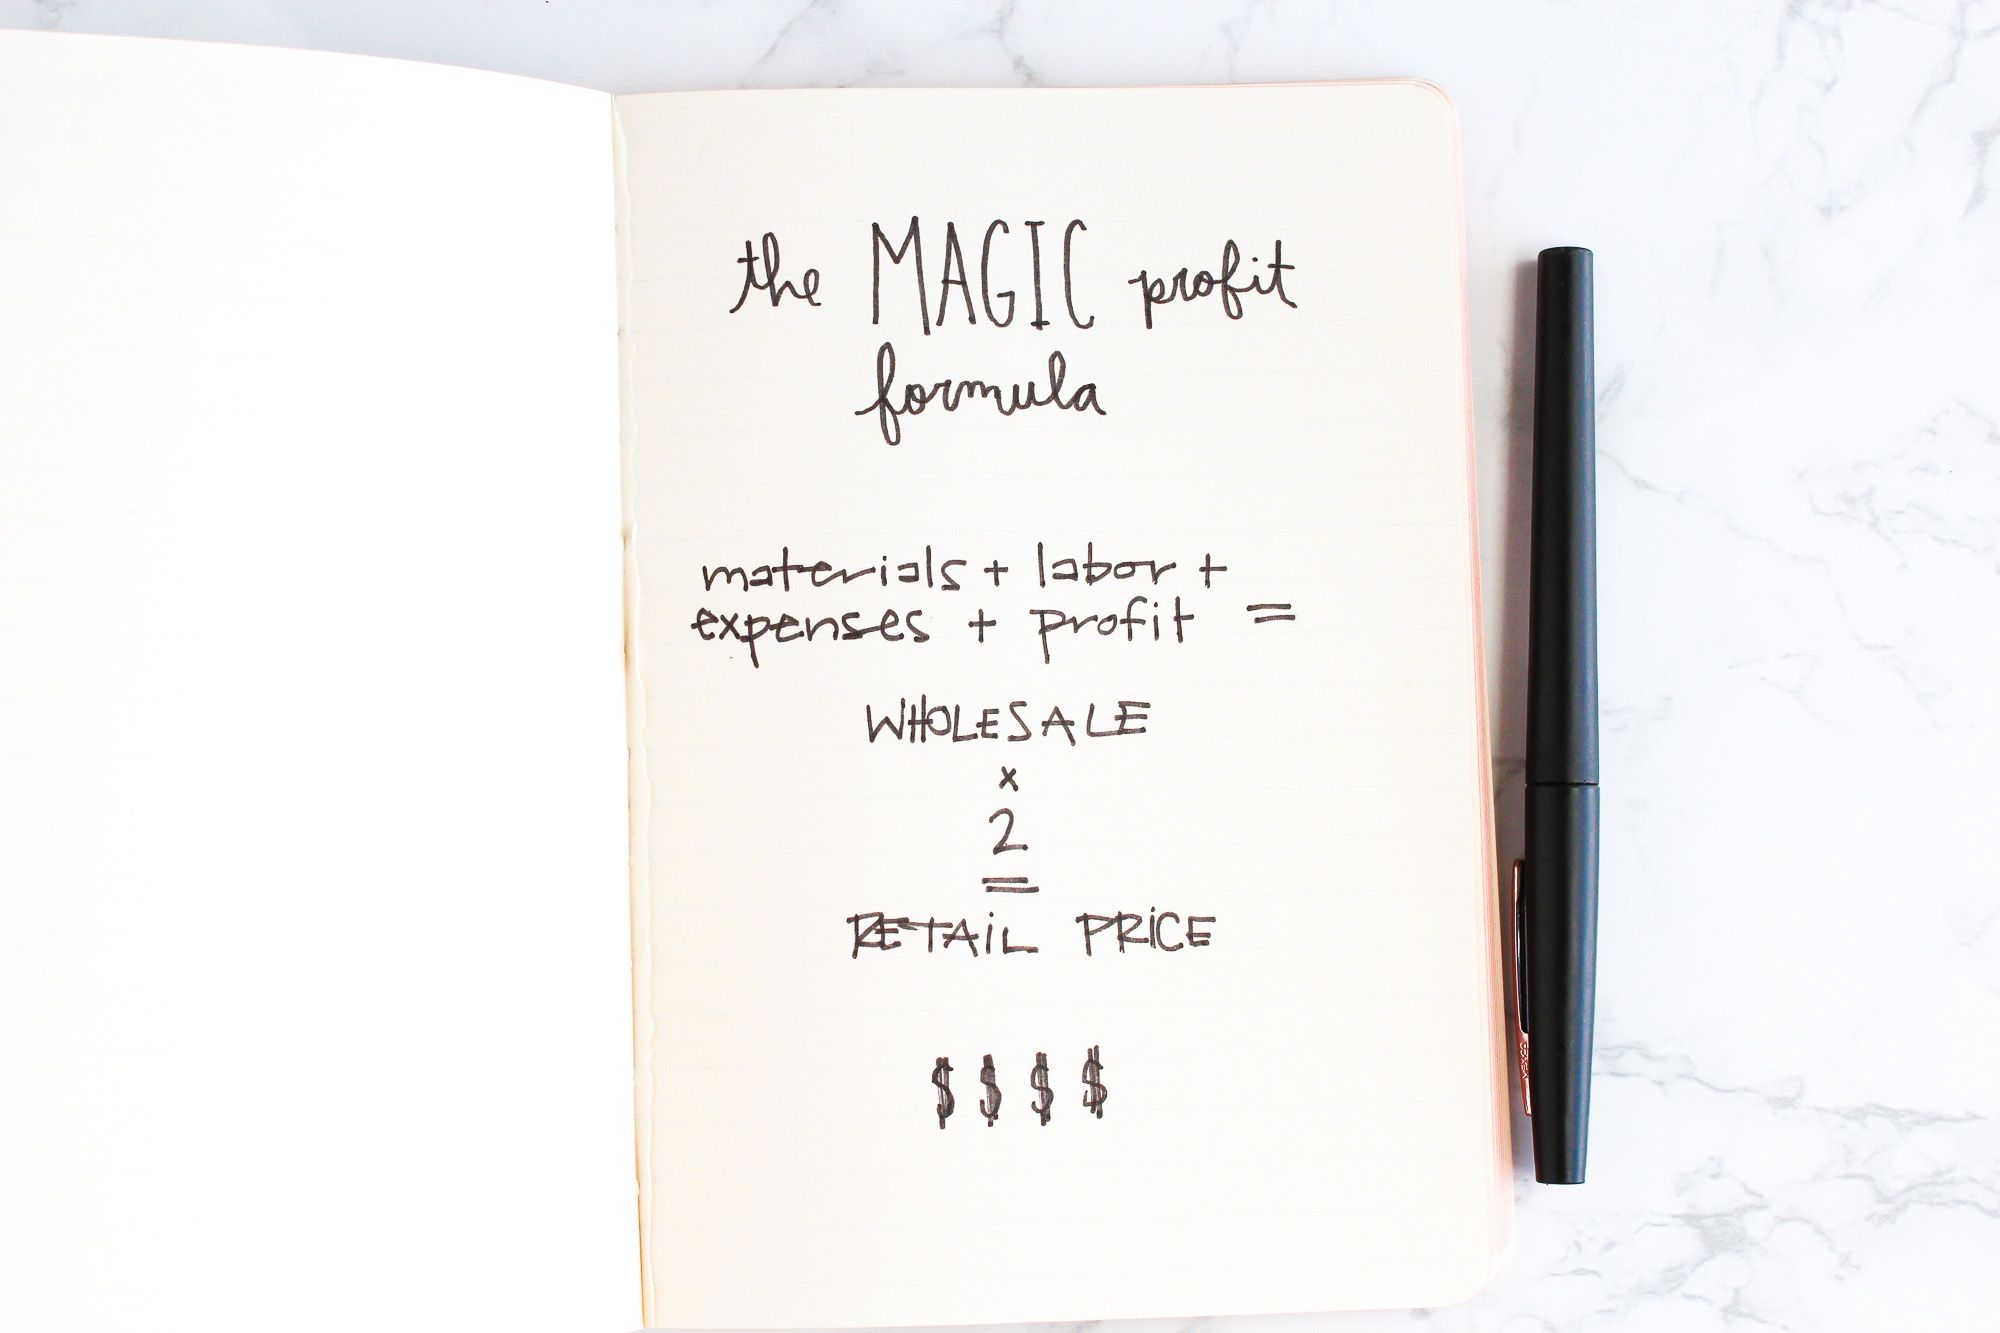 the MAGIC profit
formula
materials + labor +
expenses + profit =
WHOLESALE
x
2
=
RETAIL PRICE
$ $ $ $